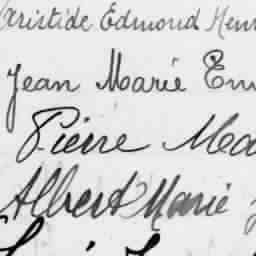 Aristide Edmond Henr
Jean Marie Em
Pierre Ma
Albert Marie